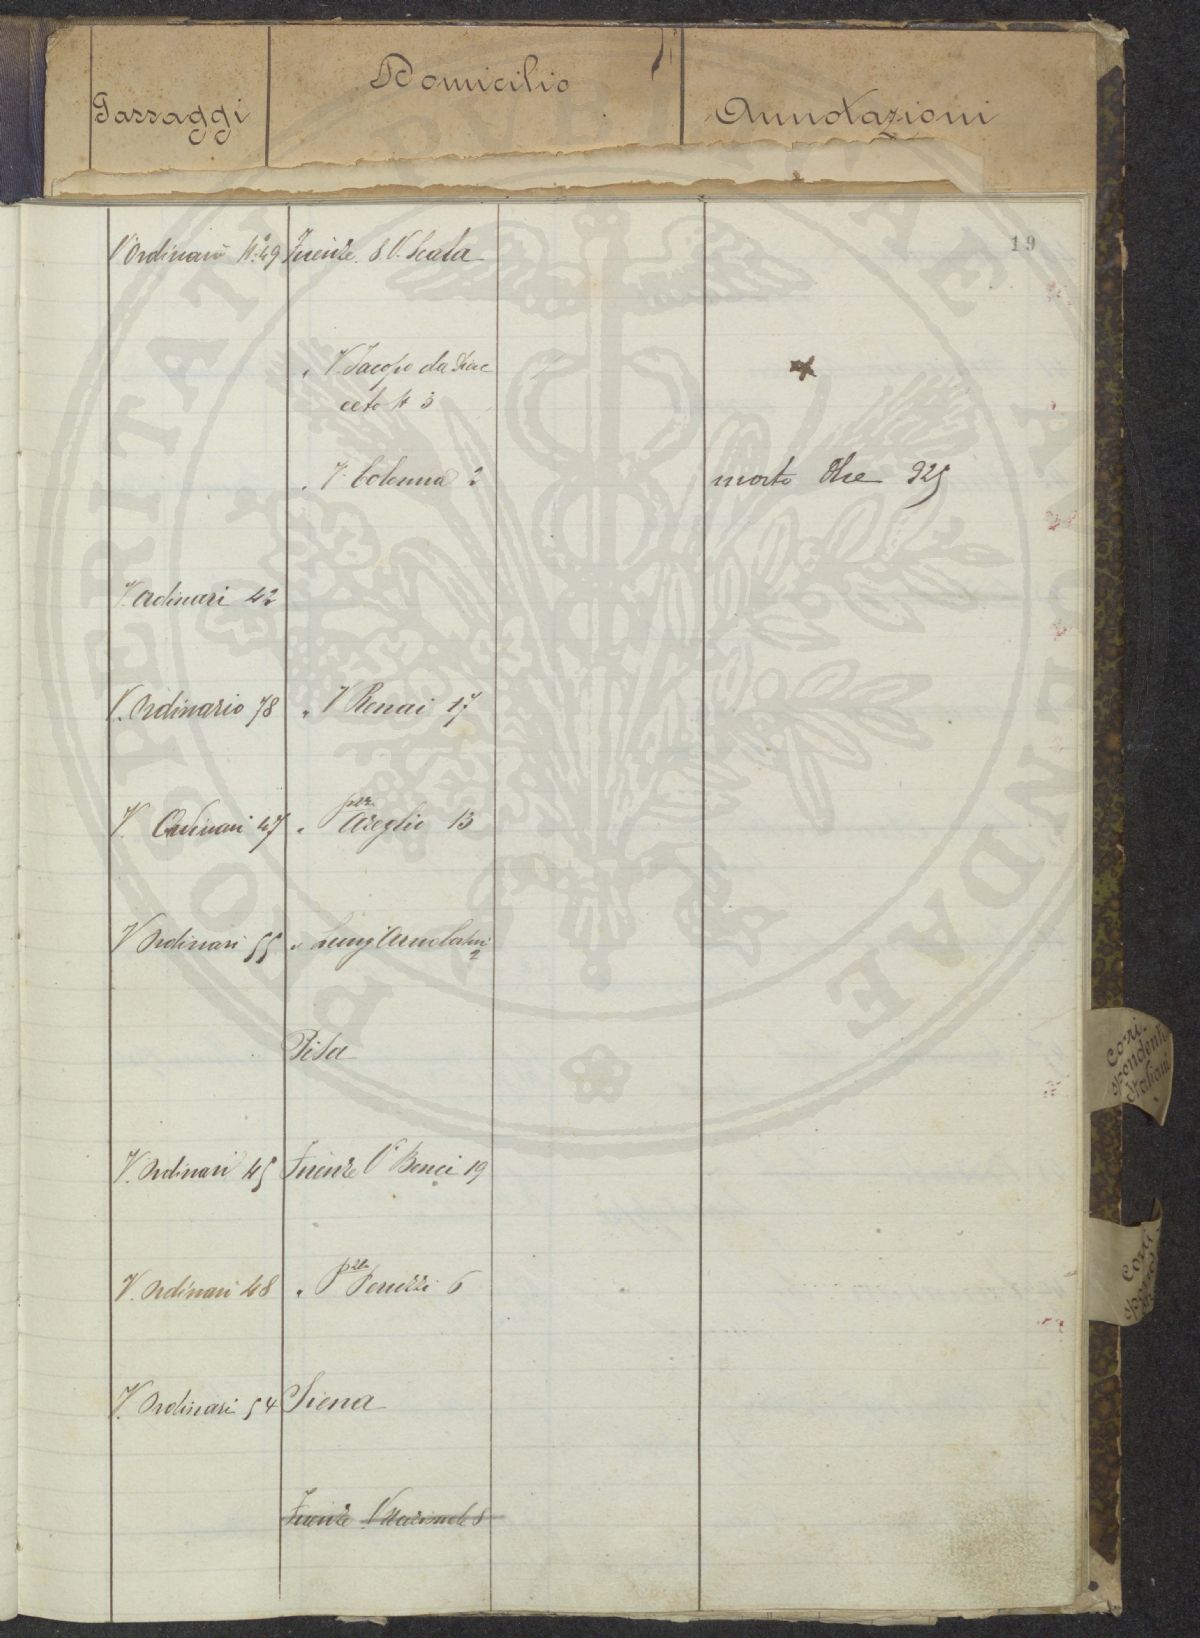 Passaggi
Domicilio
Annotazioni
19
V. Ordinari N. 49 Firenze 8 V. Scala
" V. Jacopo da Diac
ceto N 3
" V. Colonna 2
morto 925
V. Ordinari 42
V. Ordinario 78 " V Renai 17
V. Ordinari 47 " pza Azeglio 13
V. Ordinari 55 " Lung'Arno
2
Pisa
V. Ordinari 45 Firenze V. Benci 19
V. Ordinari 48 " pza Peruzzi 6
V. Ordinari 54 Siena
Firenze V Nazionale 8
Corri
spondenti
Italiani
Corri
spond
PROSPERITATI PUBLICAE AUGENDAE